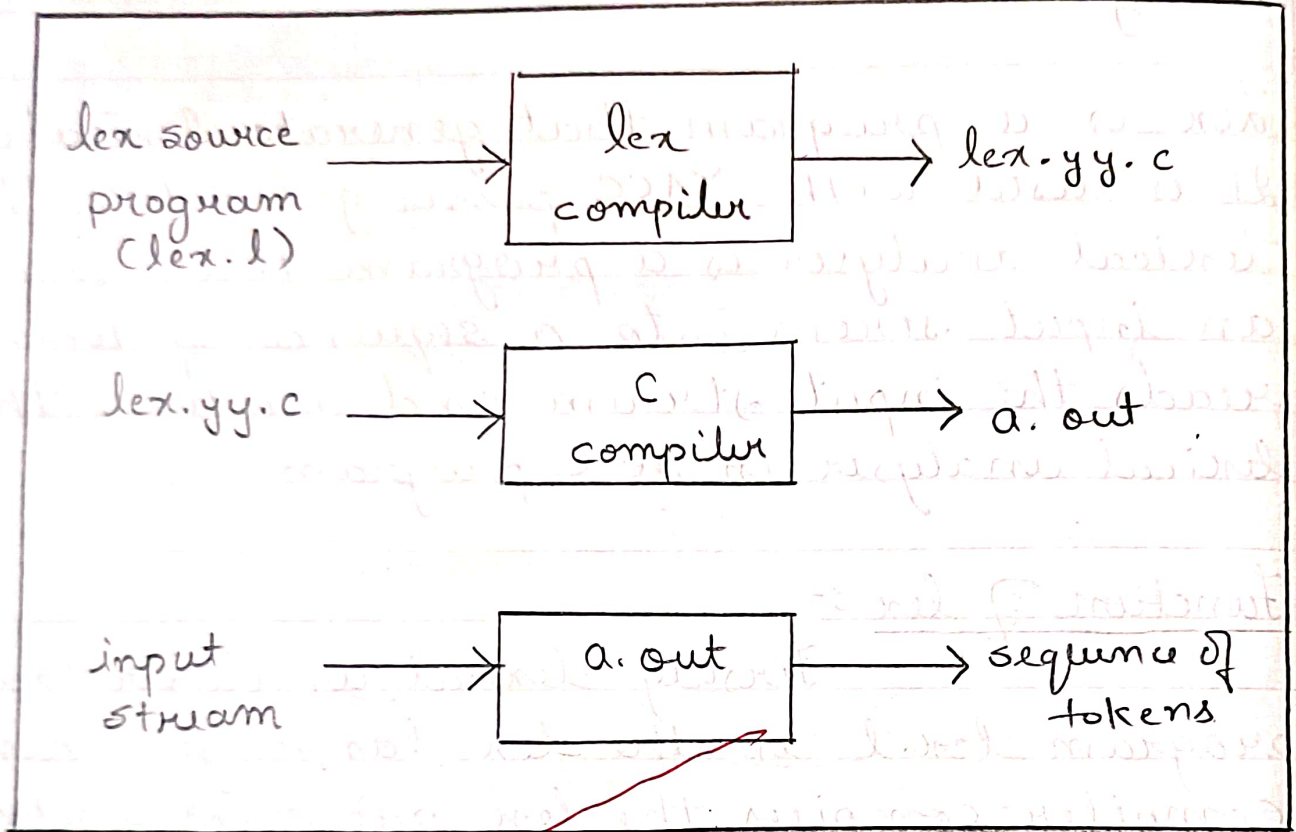 lex source
program
(lex.l)
lex
compiler
lex.yy.c
lex.yy.c
C
compiler
a.out
input
stream
a.out
sequence of
tokens